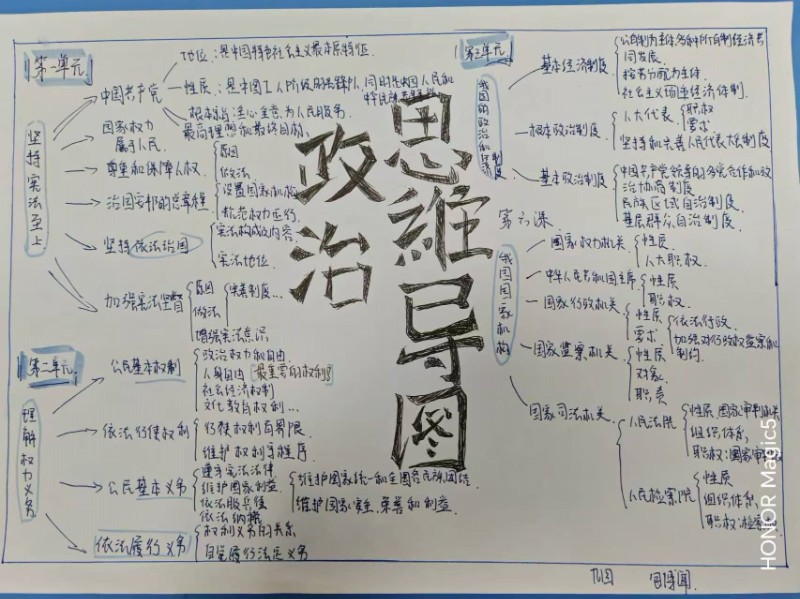 政治
思維导圖
第一单元
坚持宪法至上
中国共产党
地位：是中国特色社会主义最本质特征
性质：是中国工人阶级的先锋队，同时是中国人民和
根本宗旨：全心全意为人民服务
最高理想和最终目标
国家权力
属于人民
尊重和保障人权
原因
做法
治国安邦的总章程
设置国家机构
规范权力运行
坚持依法治国
宪法构成及内容
宪法地位
加强宪法监督
原因
做法
完善制度…
增强宪法意识
第二单元
理解权力义务
公民基本权利
政治权力和自由
人身自由
最重要的权利
社会经济权利
文化教育权利…
依法行使权利
行使权利有界限
维护权利守程序
公民基本义务
遵守宪法法律
维护国家利益
依法服兵役
依法纳税
维护国家统一和全国各民族团结
维护国家安全、荣誉和利益
依法履行义务
权利义务的关系
自觉履行法定义务
第三单元
基本经济制度
公有制为主体，多种所有制经济共
同发展
按劳分配为主体
社会主义市场经济体制
根本政治制度
人大代表
职权
要求
坚持和完善人民代表大会制度
基本政治制度
中国共产党领导的多党合作和政
治协商制度
民族区域自治制度
基层群众自治制度
第六课
我国国家机构
国家权力机关
性质
人大职权
中华人民共和国主席
性质
职权
国家行政机关
性质
要求
依法行政
加强对行政权监察和
制约
国家监察机关
性质
对象
职责
国家司法机关
人民法院
性质：国家审判机关
组织体系
职权：国家审判权
人民检察院
性质
组织体系
职权：检察权
HONOR Magic5